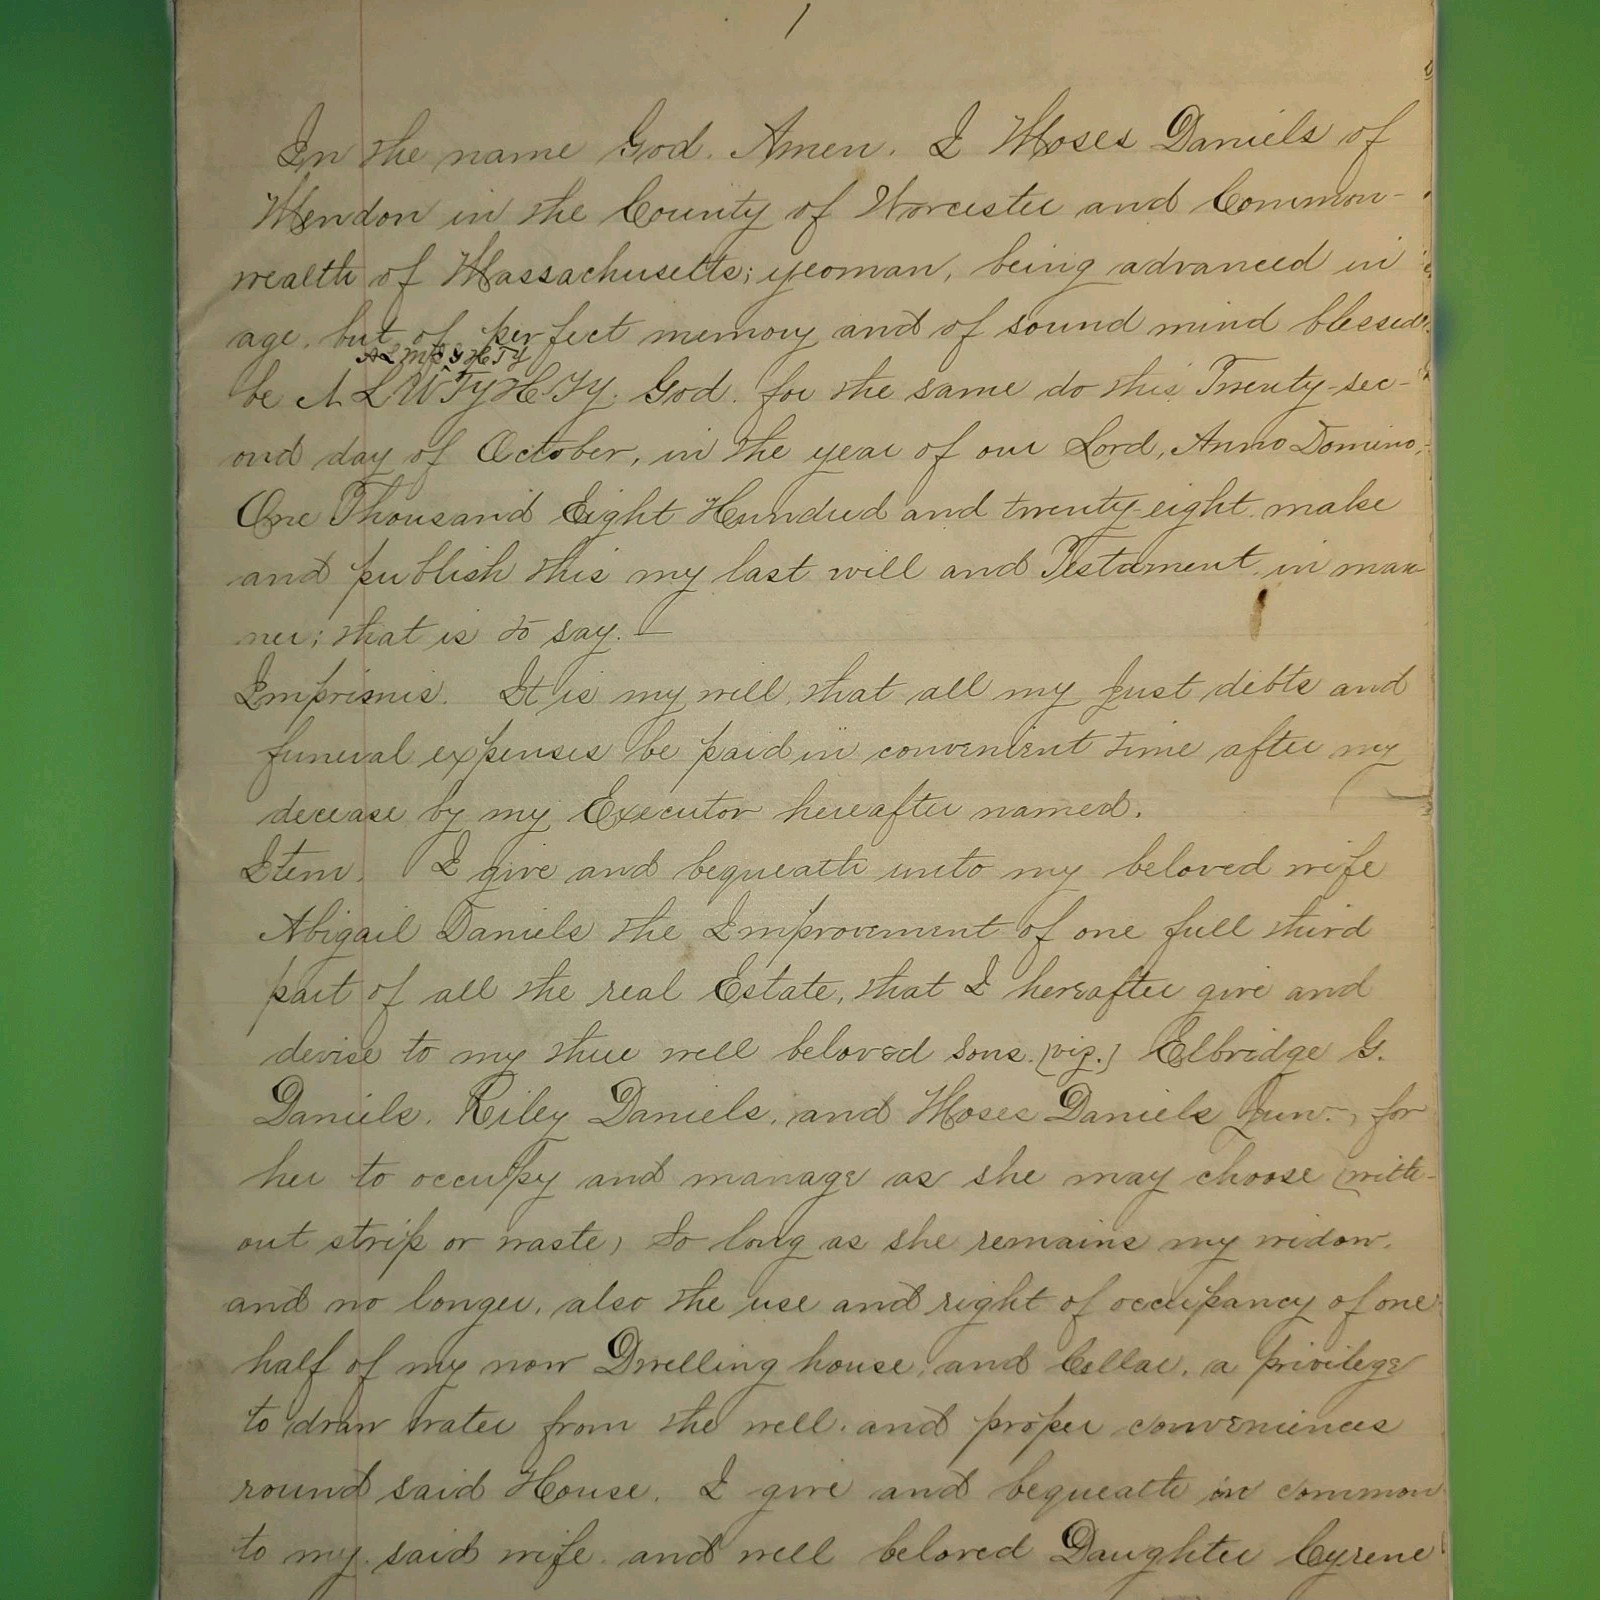 1
In the name God. Amen. I Moses Daniels of
Mendon in the County of Worcester and Common-
wealth of Massachusetts; yeoman, being advanced in
age, but of perfect memory and of sound mind blessed
ALMIGHTY
be God. for the same do this Twenty-sec-
ond day of October, in the year of our Lord, Anno Domino,
One Thousand Eight Hundred and twenty-eight make
and publish this my last will and Testament in man
ner; that is to say. —
Imprisnis. It is my will, that all my just debts and
funeral expenses be paid in convenient time after my
decease by my Executor hereafter named.
Item. I give and bequeath unto my beloved wife
Abigail Daniels the Improvement of one full third
part of all the real Estate, that I hereafter give and
devise to my three well beloved sons. (viz.) Elbridge G.
Daniels, Riley Daniels, and Moses Daniels Jun., for
her to occupy and manage as she may choose (with-
out strip or waste) So long as she remains my widow.
and no longer, also the use and right of occupancy of one
half of my now Dwelling house, and Cellar, a privilege
to draw water from the well. and proper conveniences
round said House. I give and bequeath in common
to my said wife. and well beloved Daughter Cyrene